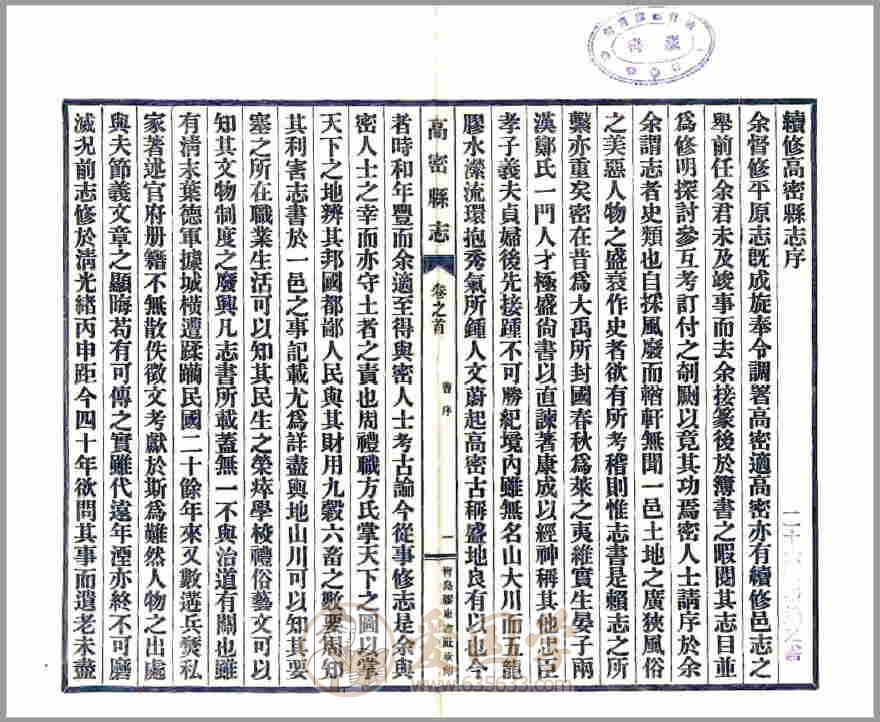 續修高密縣志序
余督修平原志既成旋奉令調署高密適高密亦有續修邑志之
舉前任余君未及竣事而去余接篆後於簿書之暇閱其志目並
為修明探討參互考訂付之剞劂以竟其功焉密人士請序於余
余謂志者史類也自採風廢而輶軒無聞一邑土地之廣狹風俗
之美惡人物之盛衰作史者欲有所考稽則惟志書是賴志之所
繫亦重矣密在昔為大禹所封國春秋為萊之夷維實生晏子兩
漢鄭氏一門人才極盛尚書以直諫著康成以經神稱其他忠臣
孝子義夫貞婦後先接踵不可勝紀境內雖無名山大川而五龍
膠水瀠流環抱秀氣所鍾人文蔚起高密古稱盛地良有以也今
高密縣志
卷之首
曹序
一
青島膠東書社承印
者時和年豐而余適至得與密人士考古論今從事修志是余與
密人士之幸而亦守土者之責也周禮職方氏掌天下之圖以掌
天下之地辨其邦國都鄙人民與其財用九穀六畜之數要周知
其利害志書於一邑之事記載尤為詳盡輿地山川可以知其要
塞之所在職業生活可以知其民生之榮瘁學校禮俗藝文可以
知其文物制度之廢興凡志書所載蓋無一不與治道有關也雖
有清末葉德軍據城橫遭蹂躪民國二十餘年來又數遘兵燹私
家著述官府册籍不無散佚徵文考獻於斯為難然人物之出處
與夫節義文章之顯晦苟有可傳之實雖代遠年湮亦終不可磨
滅况前志修於清光緒丙申距今四十年欲問其事而遺老未盡
愛国学
www.635633.com